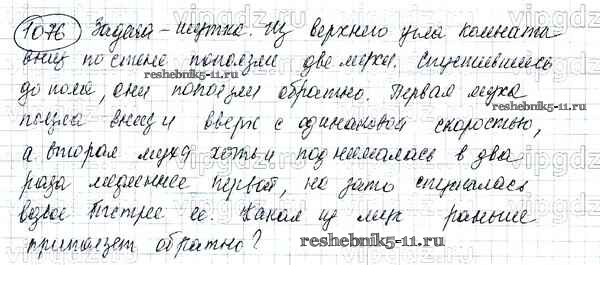 1076 Задача-шутка. Из верхнего угла комнаты
вниз по стене поползли две мухи. Спустившись
reshebnik5-11.ru
до пола, они поползли обратно. Первая муха
reshebnik5-11.ru
ползла вниз и вверх с одинаковой скоростью,
а вторая муха хоть и поднималась в два
раза медленнее первой, но зато спускалась
вдвое быстрее её. Какая из мух раньше
приползет обратно?
reshebnik5-11.ru